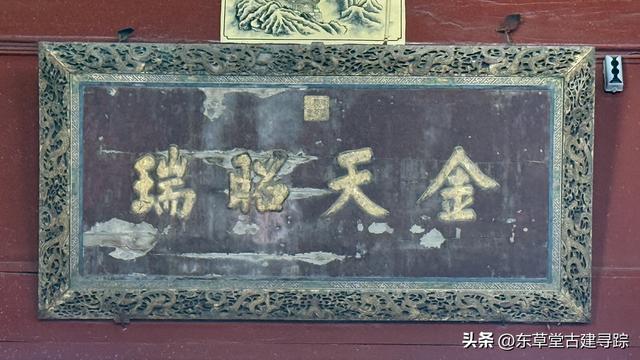 金天昭瑞
头条 @东草堂古建寻踪